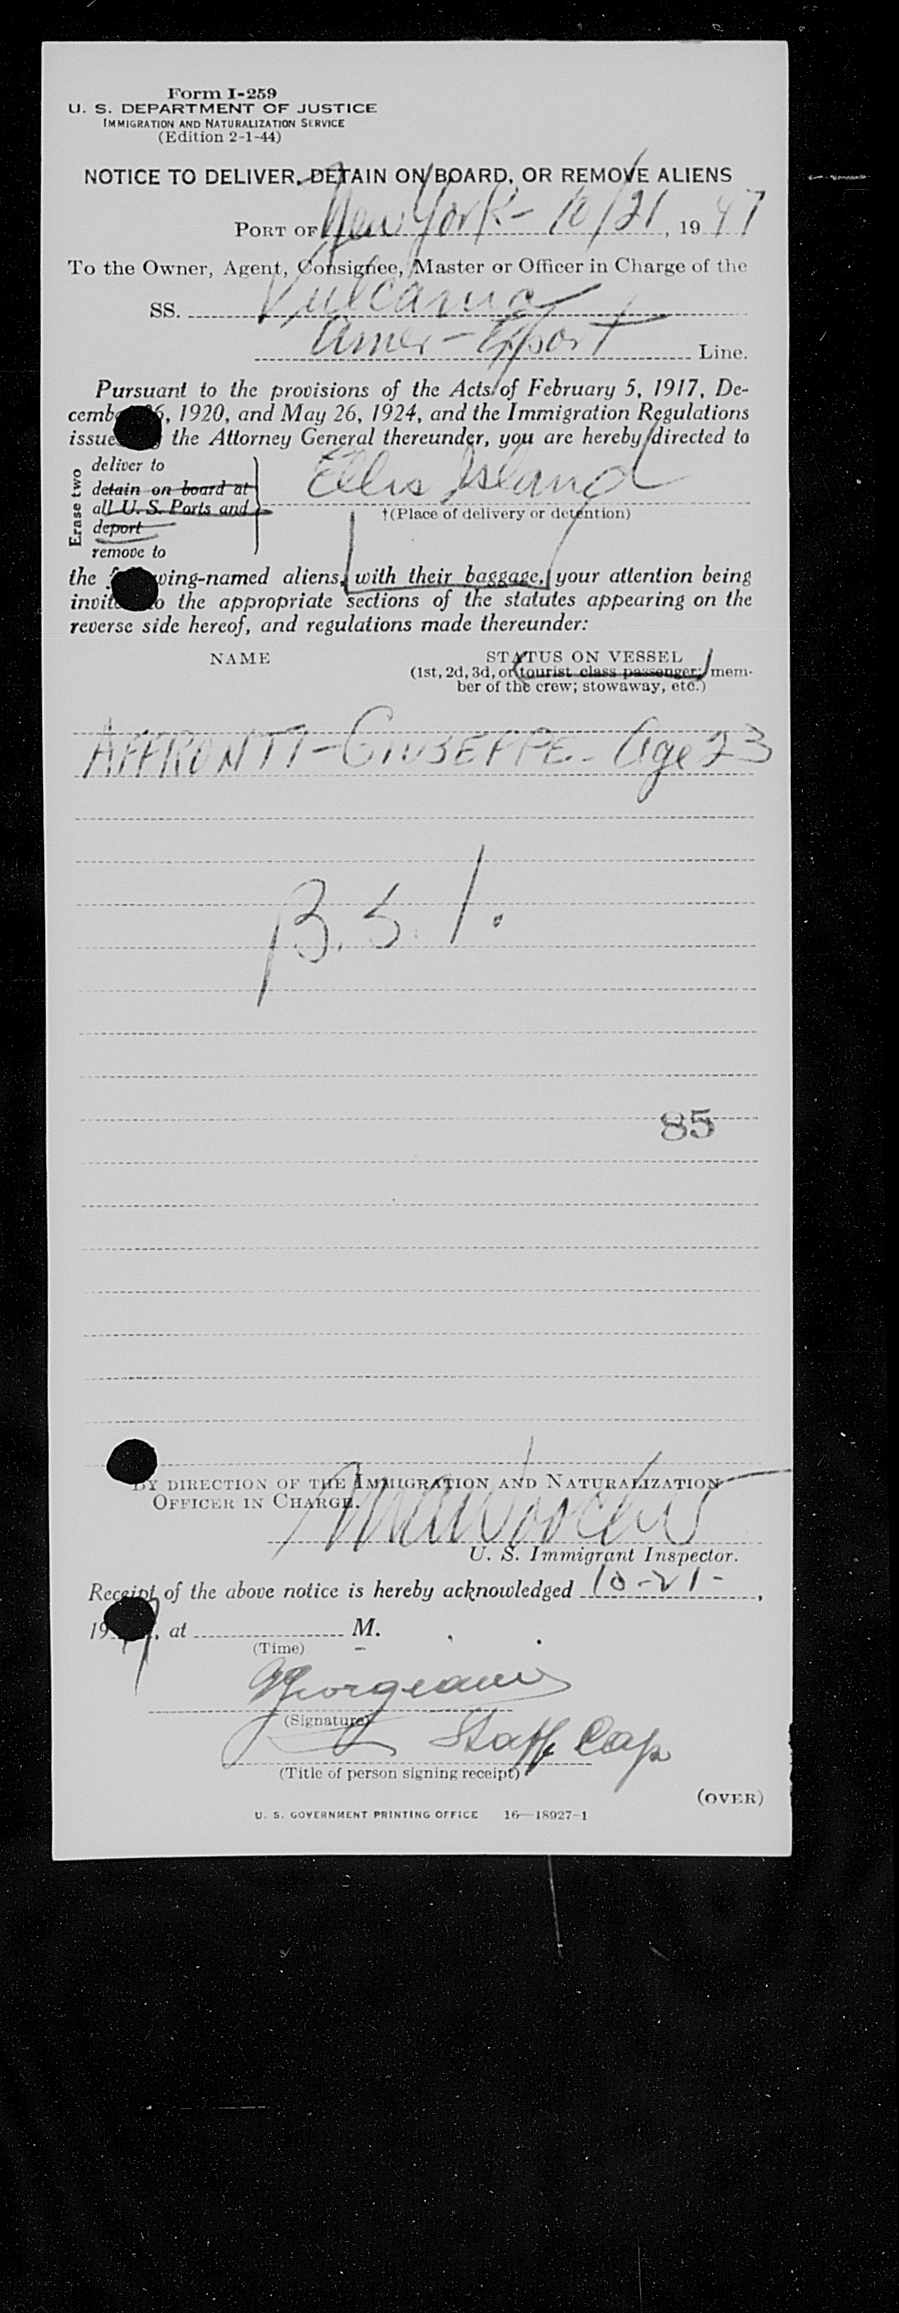 Form I-259
U. S. DEPARTMENT OF JUSTICE
IMMIGRATION AND NATURALIZATION SERVICE
(Edition 2-1-44)
NOTICE TO DELIVER, DETAIN ON BOARD, OR REMOVE ALIENS
PORT OF New York - 10/21, 1947
To the Owner, Agent, Consignee, Master or Officer in Charge of the
SS. Vulcania
Amer-Export Line.
Pursuant to the provisions of the Acts of February 5, 1917, De-
cemb 26, 1920, and May 26, 1924, and the Immigration Regulations
issue the Attorney General thereunder, you are hereby directed to
Erase two
deliver to
detain on board at
all U. S. Ports and
deport
remove to
Ellis Island
†(Place of delivery or detention)
the wing-named aliens, with their baggage, your attention being
invit to the appropriate sections of the statutes appearing on the
reverse side hereof, and regulations made thereunder:
NAME
STATUS ON VESSEL
(1st, 2d, 3d, or tourist class passenger; mem-
ber of the crew; stowaway, etc.)
AFFRONTI - GIUSEPPE - Age 23
B. S. I.
85
BY DIRECTION OF THE IMMIGRATION AND NATURALIZATION
OFFICER IN CHARGE.
U. S. Immigrant Inspector.
Receipt of the above notice is hereby acknowledged 10-21-,
19 7, at M.
(Time)
(Signature)
Staff Cap
(Title of person signing receipt)
(OVER)
U. S. GOVERNMENT PRINTING OFFICE 16—18927-1